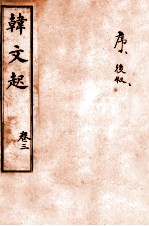 韓文起
卷三
序、後叙、